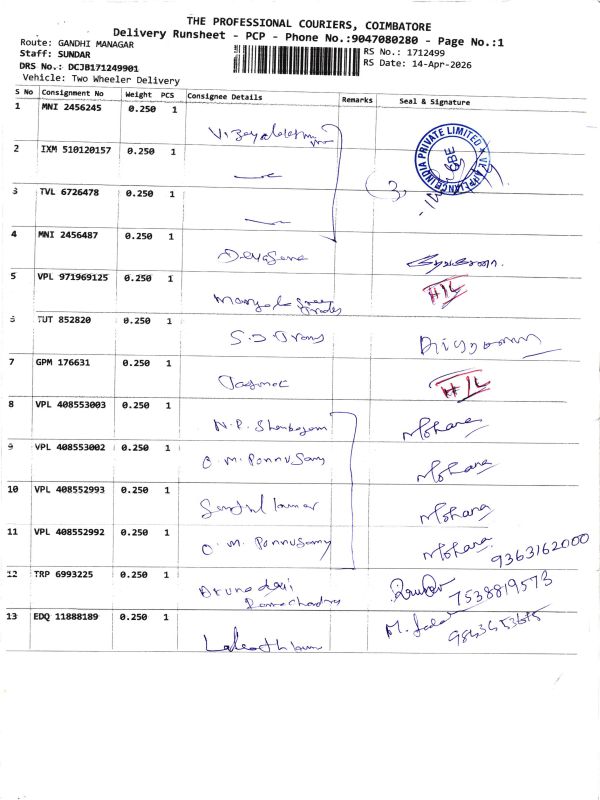 THE PROFESSIONAL COURIERS, COIMBATORE
Delivery Runsheet - PCP - Phone No.:9047080280 - Page No.:1
Route: GANDHI MANAGAR
Staff: SUNDAR
DRS No.: DCJB171249901
Vehicle: Two Wheeler Delivery
RS No.: 1712499
RS Date: 14-Apr-2026
S No Consignment No Weight PCS Consignee Details Remarks Seal & Signature
1 MNI 2456245 0.250 1
2 IXM 510120157 0.250 1
3 TVL 6726478 0.250 1
4 MNI 2456487 0.250 1 Devasena
5 VPL 971969125 0.250 1 H/L
6 TUT 852820 0.250 1
7 GPM 176631 0.250 1 Tasmac H/L
8 VPL 408553003 0.250 1 N.P. Shenbagam Mohana
9 VPL 408553002 0.250 1 O.M. Ponnusamy Mohana
10 VPL 408552993 0.250 1 Senthil kumar Mohana
11 VPL 408552992 0.250 1 O.M. Ponnusamy Mohana
9363162000
12 TRP 6993225 0.250 1 7538819573
13 EDQ 11888189 0.250 1 M.